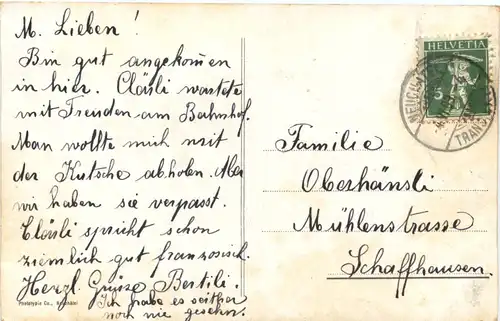 M. Lieben!
Bin gut angekommen
in hier. Clärli wartete
mit Freuden am Bahnhof.
Man wollte mich mit
der Kutsche abholen. Aber
wir haben sie verpasst.
Clärli spricht schon
ziemlich gut französisch.
Herzl. Grüsse Bertili.
Ich habe es seither
noch nie gesehn.
Phototypie Co., Neuchâtel
HELVETIA
5
TRANS
Familie
Oberhänsli
Mühlenstrasse
Schaffhausen.